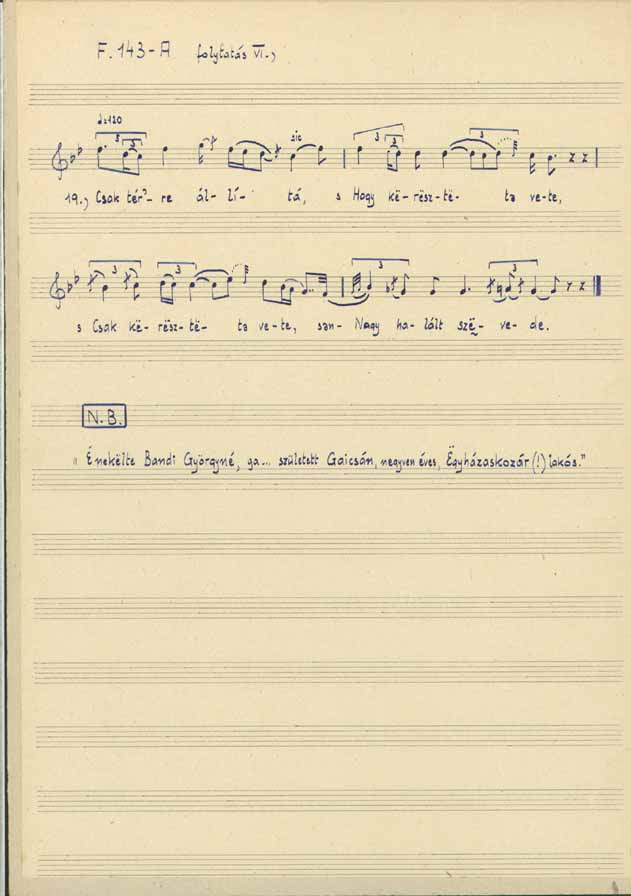 F. 143-A folytatás VI.,
♩=120
3 3 sic 3 3 3
19., Csak tér?- re ál- lí- tá, s Hogy kë- rësz-të- tə ve-te,
3 3 3 3
s Csak kë- rësz- të- tə ve- te, sən- Nagy ha- lált szë- ve- de.
N. B.
"Énekëlte Bandi Györgyné, ga... született Gaicsán, negyven éves, Ëgyházaskozár (!) lakós."